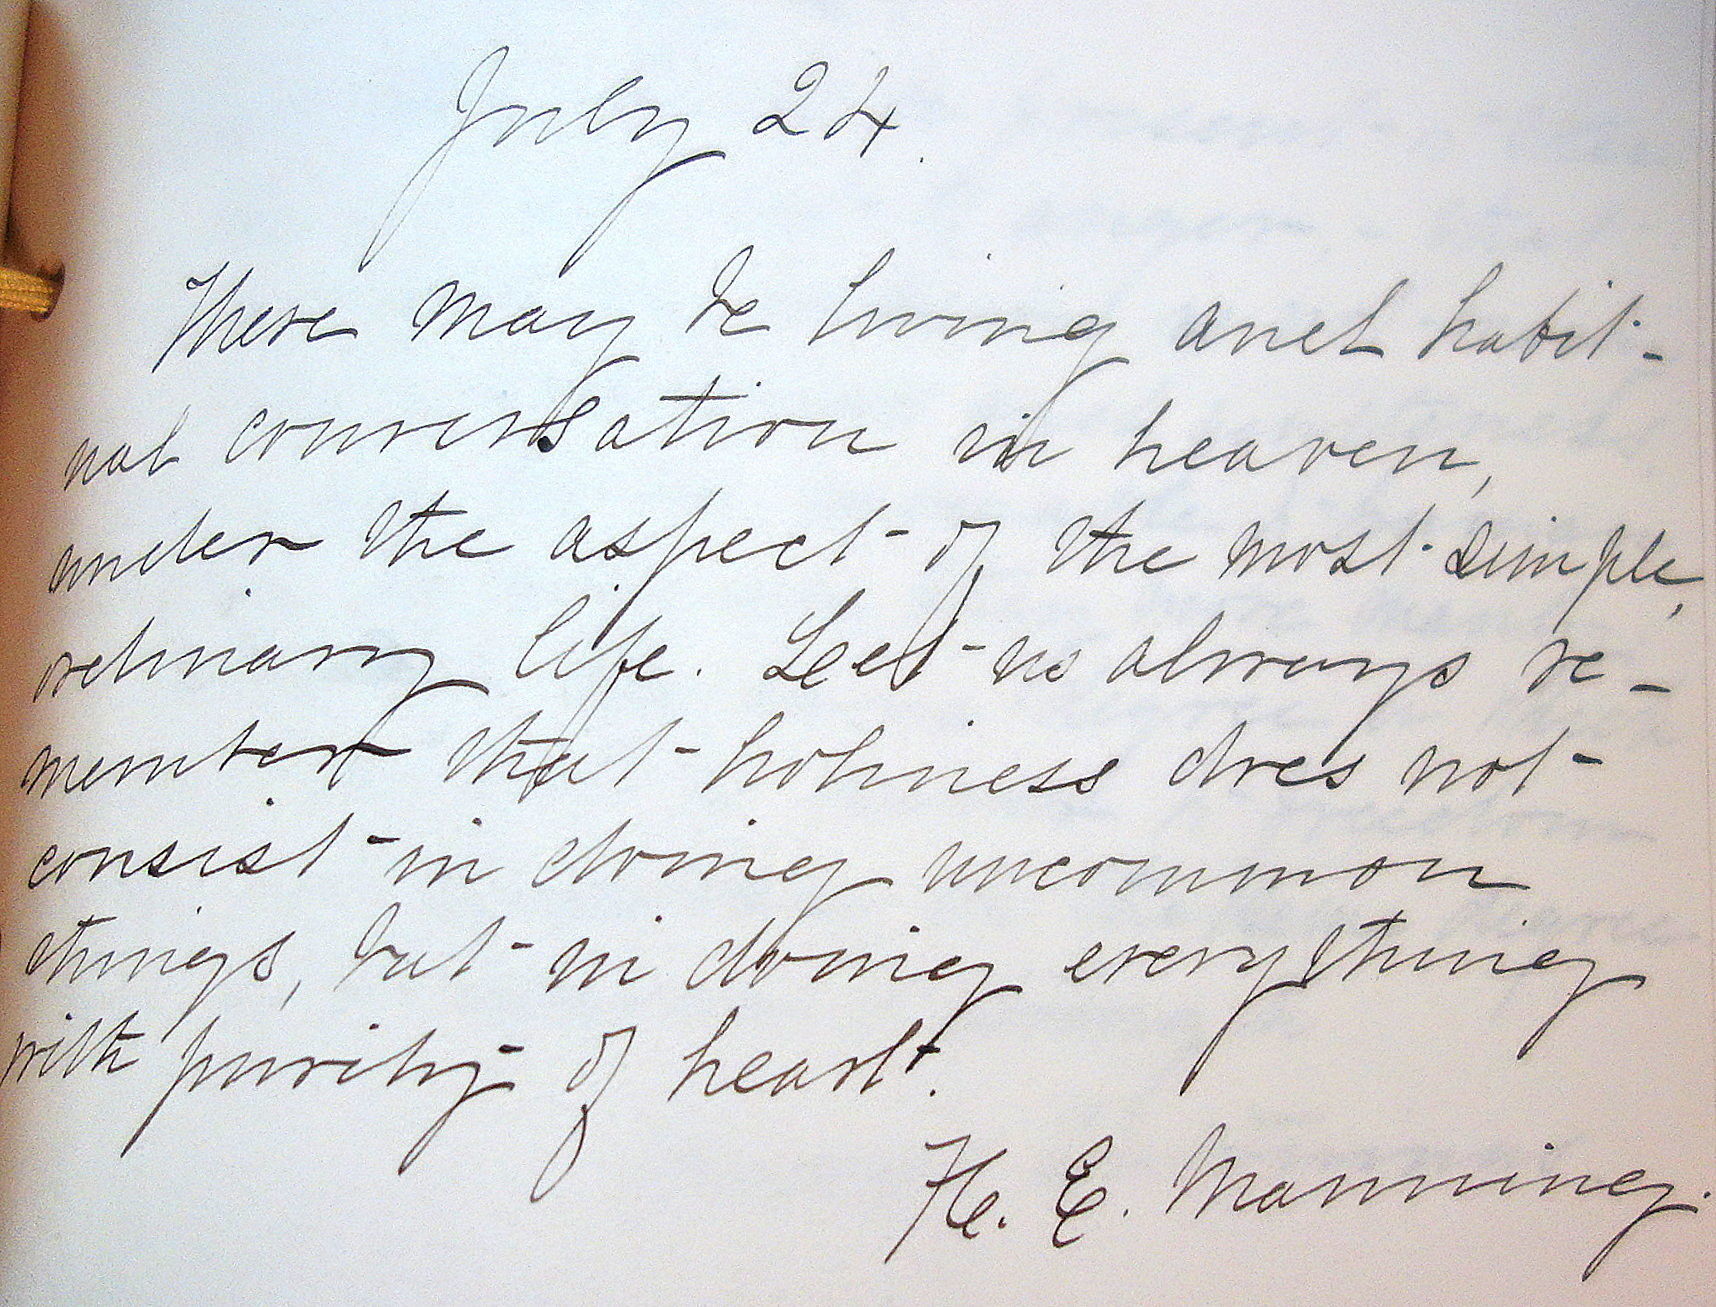 July 24.
There may be living and habit-
ual conversation in heaven,
under the aspect of the most simple,
ordinary life. Leet us always re-
member that holiness does not
consist in doing uncommon
things, but in doing everything
with purity of heart.
H. E. Manning.